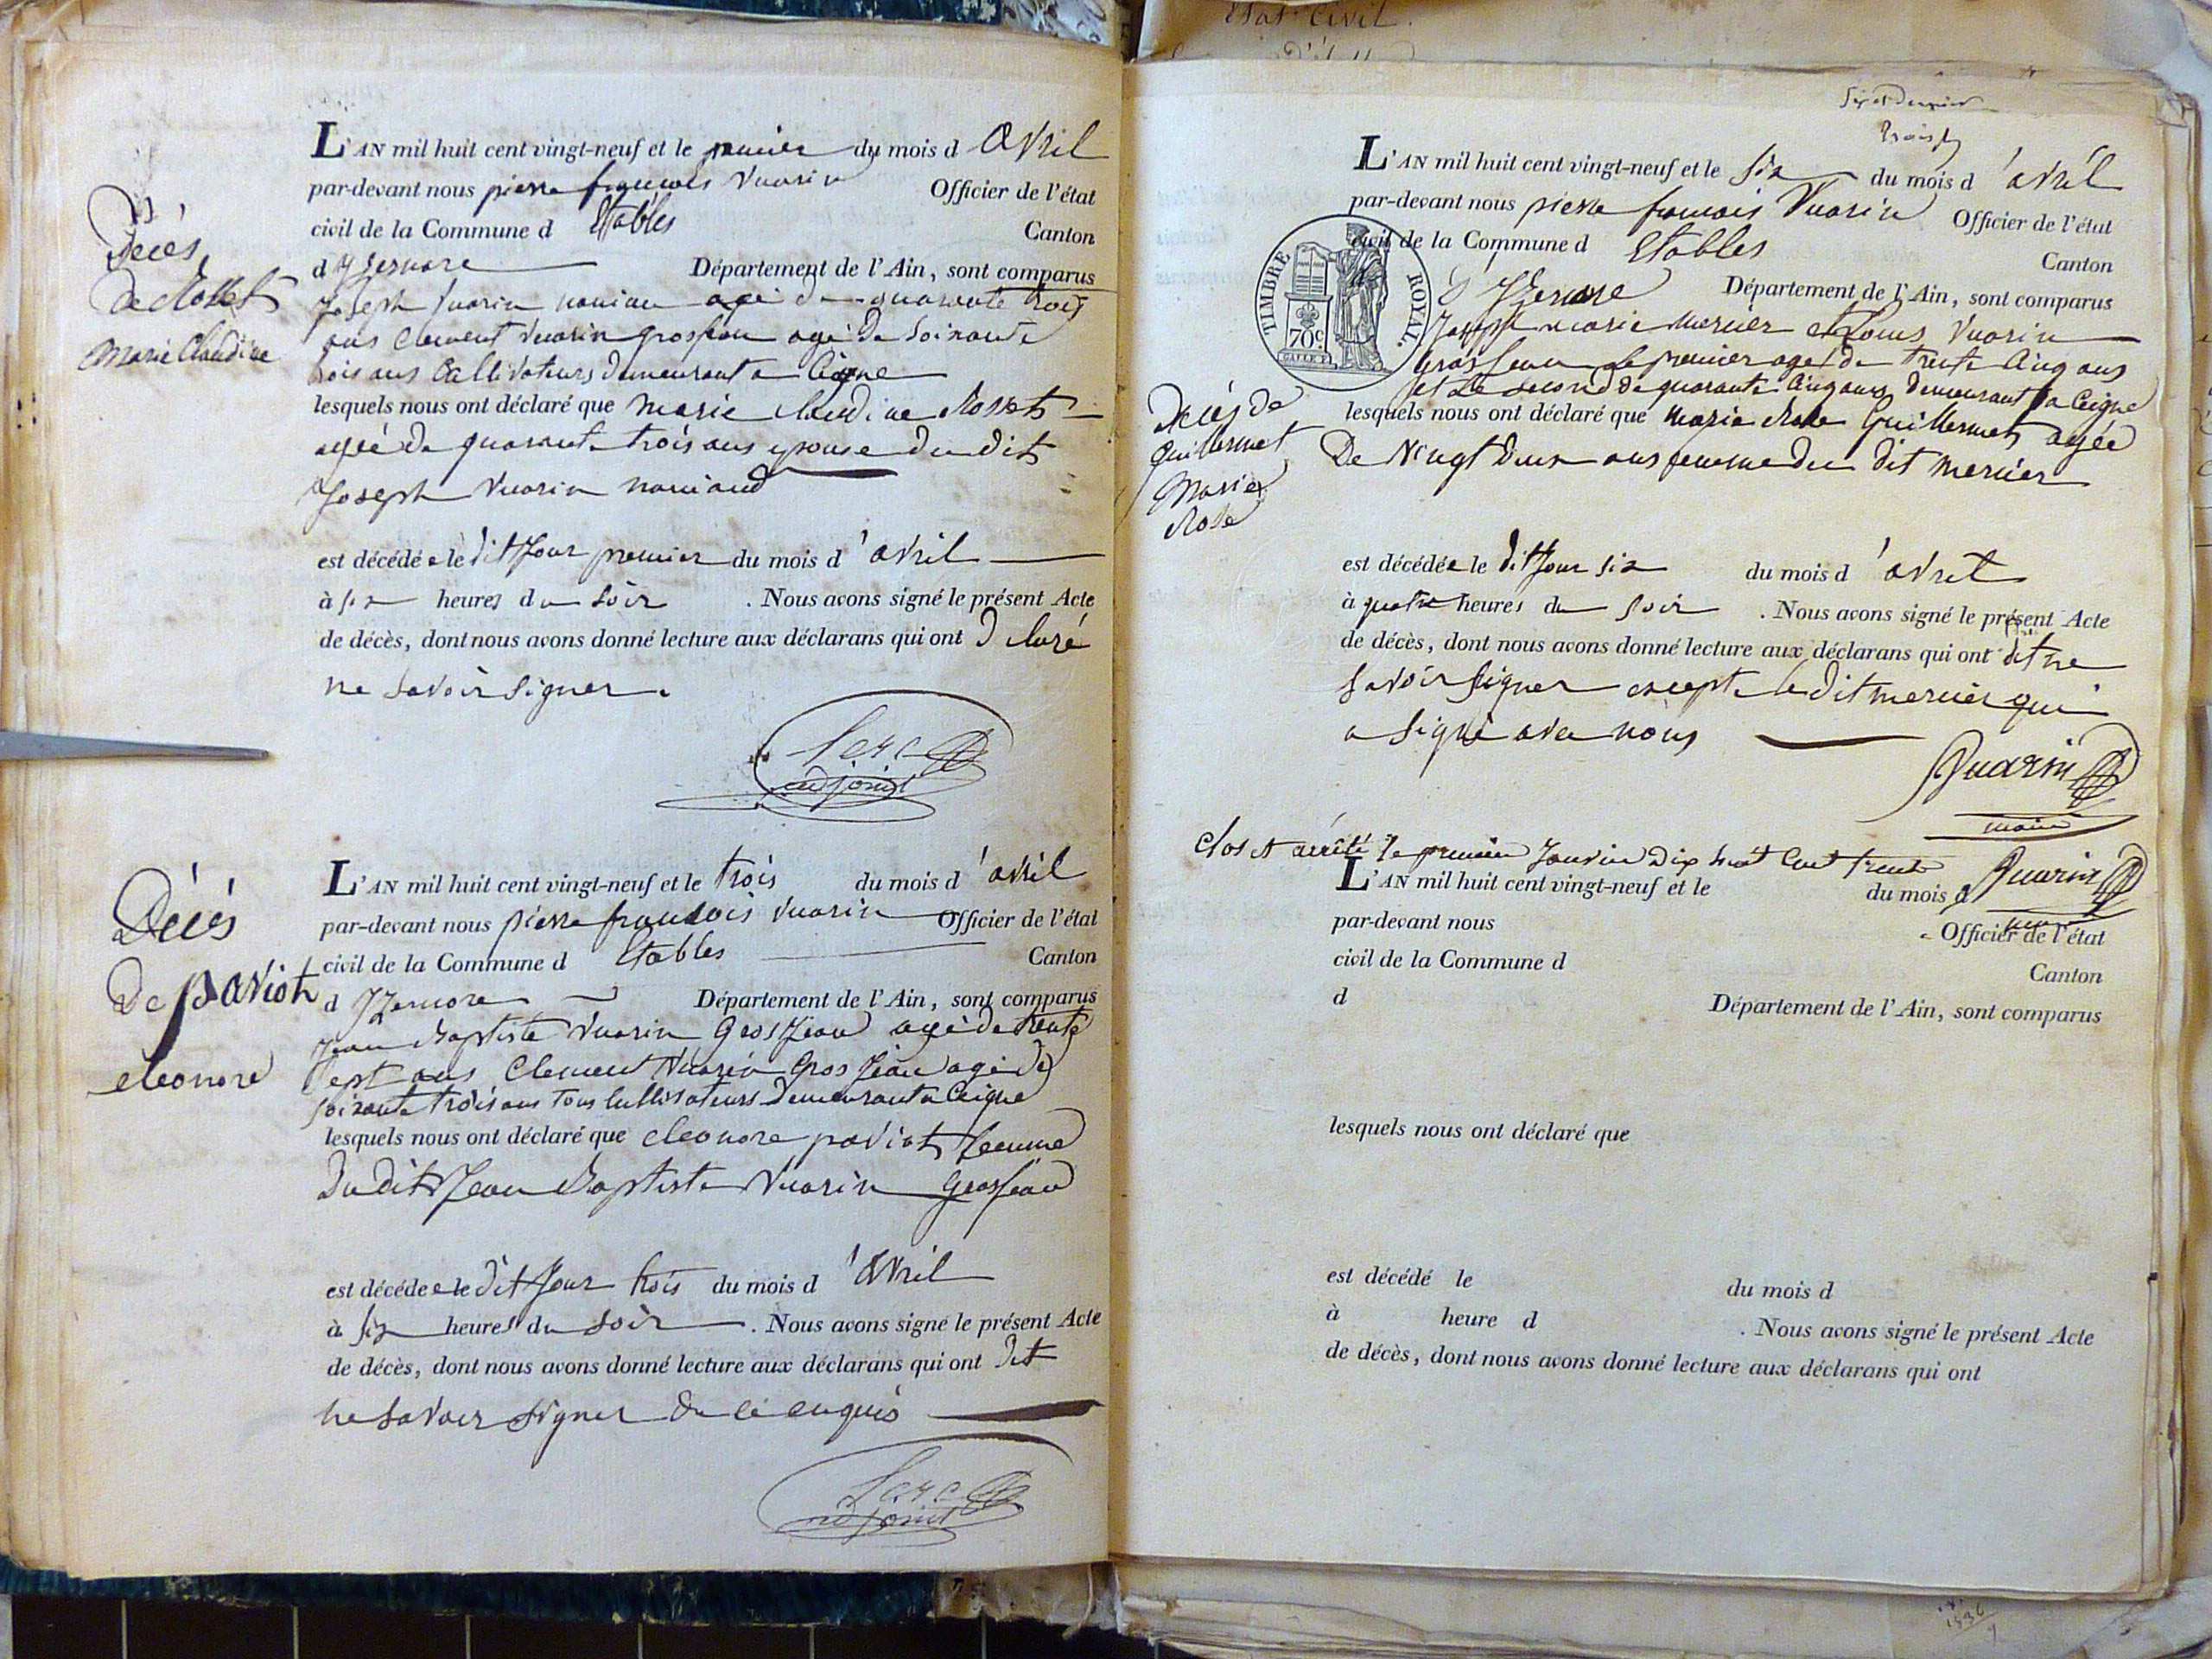 Décès
de Rosset
Marie Claudine
L'AN mil huit cent vingt-neuf et le premier du mois d avril
par-devant nous pierre francois Vuarin Officier de l'état
civil de la Commune d Etables Canton
d Izernore Département de l'Ain, sont comparus
Joseph Vuarin agé de quarante trois
ans Clement Vuarin grosjean agé de soixante
trois ans Cultivateurs demeurant a Ceigne
lesquels nous ont déclaré que marie claudine Rosset
agée de quarante trois ans epouse du dit
Joseph Vuarin
est décédée le dit Jour premier du mois d'avril
à six heures du soir . Nous avons signé le présent Acte
de décès, dont nous avons donné lecture aux déclarans qui ont déclaré
ne savoir signer.
adjoint
Décès
De paviot
eleonore
L'AN mil huit cent vingt-neuf et le trois du mois d'avril
par-devant nous pierre francois Vuarin Officier de l'état
civil de la Commune d Etables Canton
d Izernore Département de l'Ain, sont comparus
Jean Baptiste Vuarin Grosjean agé de trente
sept ans Clement Vuarin Gros jean agé de
soixante trois ans tous cultivateurs demeurant a Ceigne
lesquels nous ont déclaré que eleonore paviot femme
du dit Jean Baptiste Vuarin Grosjean
est décédée le dit Jour trois du mois d'avril
à six heures du soir . Nous avons signé le présent Acte
de décès, dont nous avons donné lecture aux déclarans qui ont dit
ne savoir signer de ce enquis
adjoint
Etat Civil.
L'AN mil huit cent vingt-neuf et le six du mois d'avril
par-devant nous pierre francois Vuarin Officier de l'état
civil de la Commune d Etables Canton
d Izernore Département de l'Ain, sont comparus
TIMBRE ROYAL.
70c.
Joseph marie mercier et Louis Vuarin
grosjean le premier agé de trente cinq ans
et le second de quarante cinq ans demeurant a Ceigne
Décès de
Guillermet
Marie
Rose
lesquels nous ont déclaré que marie Rose Guillermet agée
De Vingt deux ans femme du dit mercier
est décédée le dit Jour six du mois d'avril
à quatre heures du soir . Nous avons signé le présent Acte
de décès, dont nous avons donné lecture aux déclarans qui ont dit ne
savoir signer excepté le dit mercier qui
a signé avec nous
Vuarin
maire
Clos et arrêté le premier Janvier dix huit cent trente Vuarin
L'AN mil huit cent vingt-neuf et le du mois d
par-devant nous Officier de l'état
civil de la Commune d Canton
d Département de l'Ain, sont comparus
lesquels nous ont déclaré que
est décédé le du mois d
à heure d . Nous avons signé le présent Acte
de décès, dont nous avons donné lecture aux déclarans qui ont